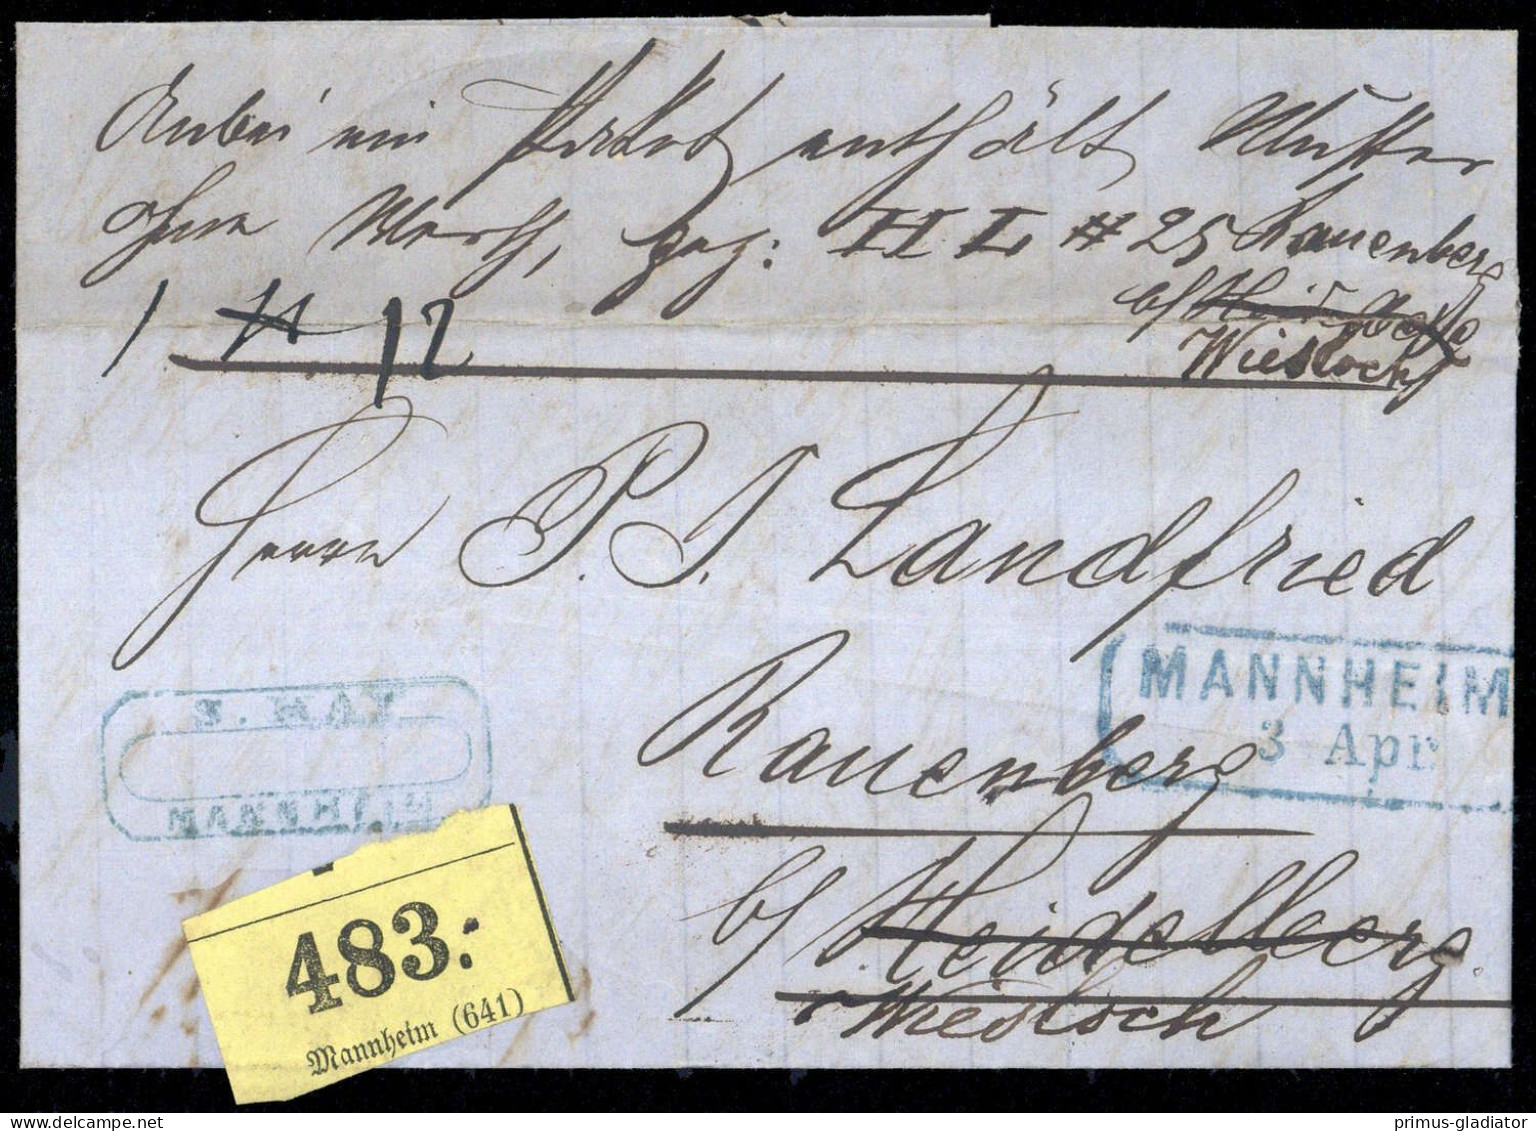 Anbei ein Paket enthält Muster
ohne Werth, gez: H L # 25 Rauenberg
b/ Heidelberg
Wiesloch
1 12
Herrn P. J. Landfried
Rauenberg
b/ Heidelberg
Wiesloch
MANNHEIM
3 Apr
MAY
MANNHEIM
483.
Mannheim (641)
primus-gladiator